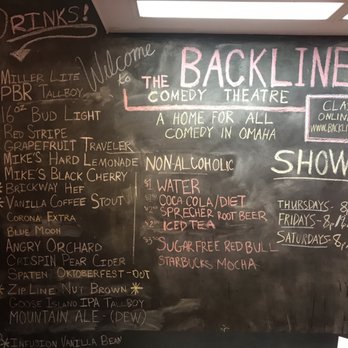 DRINKS!
MILLER LITE
PBR TALLBOY
16oz BUD LIGHT
RED STRIPE
GRAPEFRUIT TRAVELER
MIKE'S HARD LEMONADE
MIKE'S BLACK CHERRY
* BRICKWAY HEF
* VANILLA COFFEE STOUT
CORONA EXTRA
BLUE MOON
ANGRY ORCHARD
CRISPIN PEAR CIDER
SPATEN OKTOBERFEST-OUT
* ZIPLINE NUT BROWN *
GOOSE ISLAND IPA TALLBOY
MOUNTAIN ALE - (DEW)
* INFUSION VANILLA BEAN
Welcome to
THE BACKLINE
COMEDY THEATRE
A HOME FOR ALL
COMEDY IN OMAHA
NON ALCOHOLIC
WATER
COCA COLA/DIET
SPRECHER ROOT BEER
ICED TEA
SUGARFREE RED BULL
STARBUCKS MOCHA
CLA
ONLINE
SHOW
THURSDAYS - 8
FRIDAYS - 8,
SATURDAYS - 8,